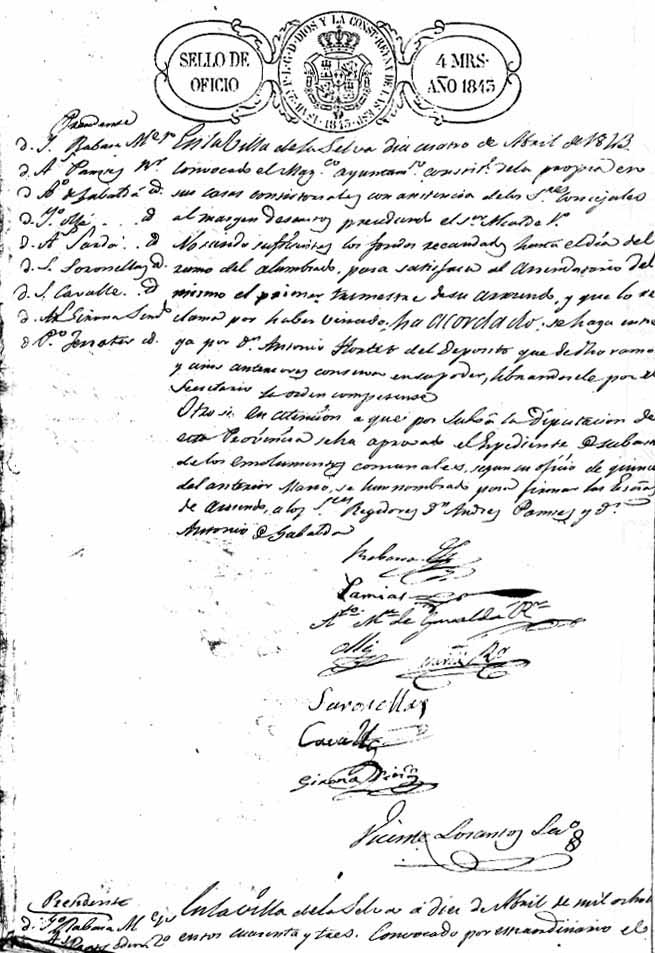 SELLO DE OFICIO
ISABEL 2ª P. L. G. D. DIOS Y LA CONST. REYNA DE LAS ESP. 1843
4 MRS. AÑO 1843
Presidente
d. J. Rabasa
d. A Pamies
d. Aº de Gabaldá id.
d. id
d. A Sardá id
d. S. Soronellas id.
d. J. Cavalle. id
d. Girona Sindº
d. Pº Ferrater id.
En la Villa de la Selva dia cuatro de Abril de 1843.
convocado el Mag.co ayuntam.to constit.l de la propia en
sus casas consistoriales con asistencia de los S.res Concejales
al margen descritos presidiendo el S.or Alcalde 1º
No siendo suficientes los fondos recaudados hasta el dia del
ramo del alumbrado, para satisfacer al Arrendatario del
mismo el primer trimestre de su arriendo, y que lo re
clama por haber vencido, ha acordado, se haga entre
ga por Dn. Antonio Hortet del deposito que de dho ramo
y años anteriores conserva en su poder, librandosele por el
Secretario la orden competente
Otro si: En atencion a que por la Diputacion de
esta Provincia se ha aprovado el Espediente de subasta
de los emolumentos comunales, segun su oficio de quince
del anterior Marzo, se han nombrado para firmar las Escrras
de arriendo, a los S.res Regidores Dn. Andres Pamies y Dn.
Antonio de Gabaldá
Rabasa
Pamias
Anto. Mª de Gavaldá
Sardá
Soronellas
Cavallé
Girona
Vicente Lorenzo Secº
Presidente
d. Rabasa
En la villa de la Selva á diez de Abril de mil ocho
cientos cuarenta y tres. Convocado por estraordinario el